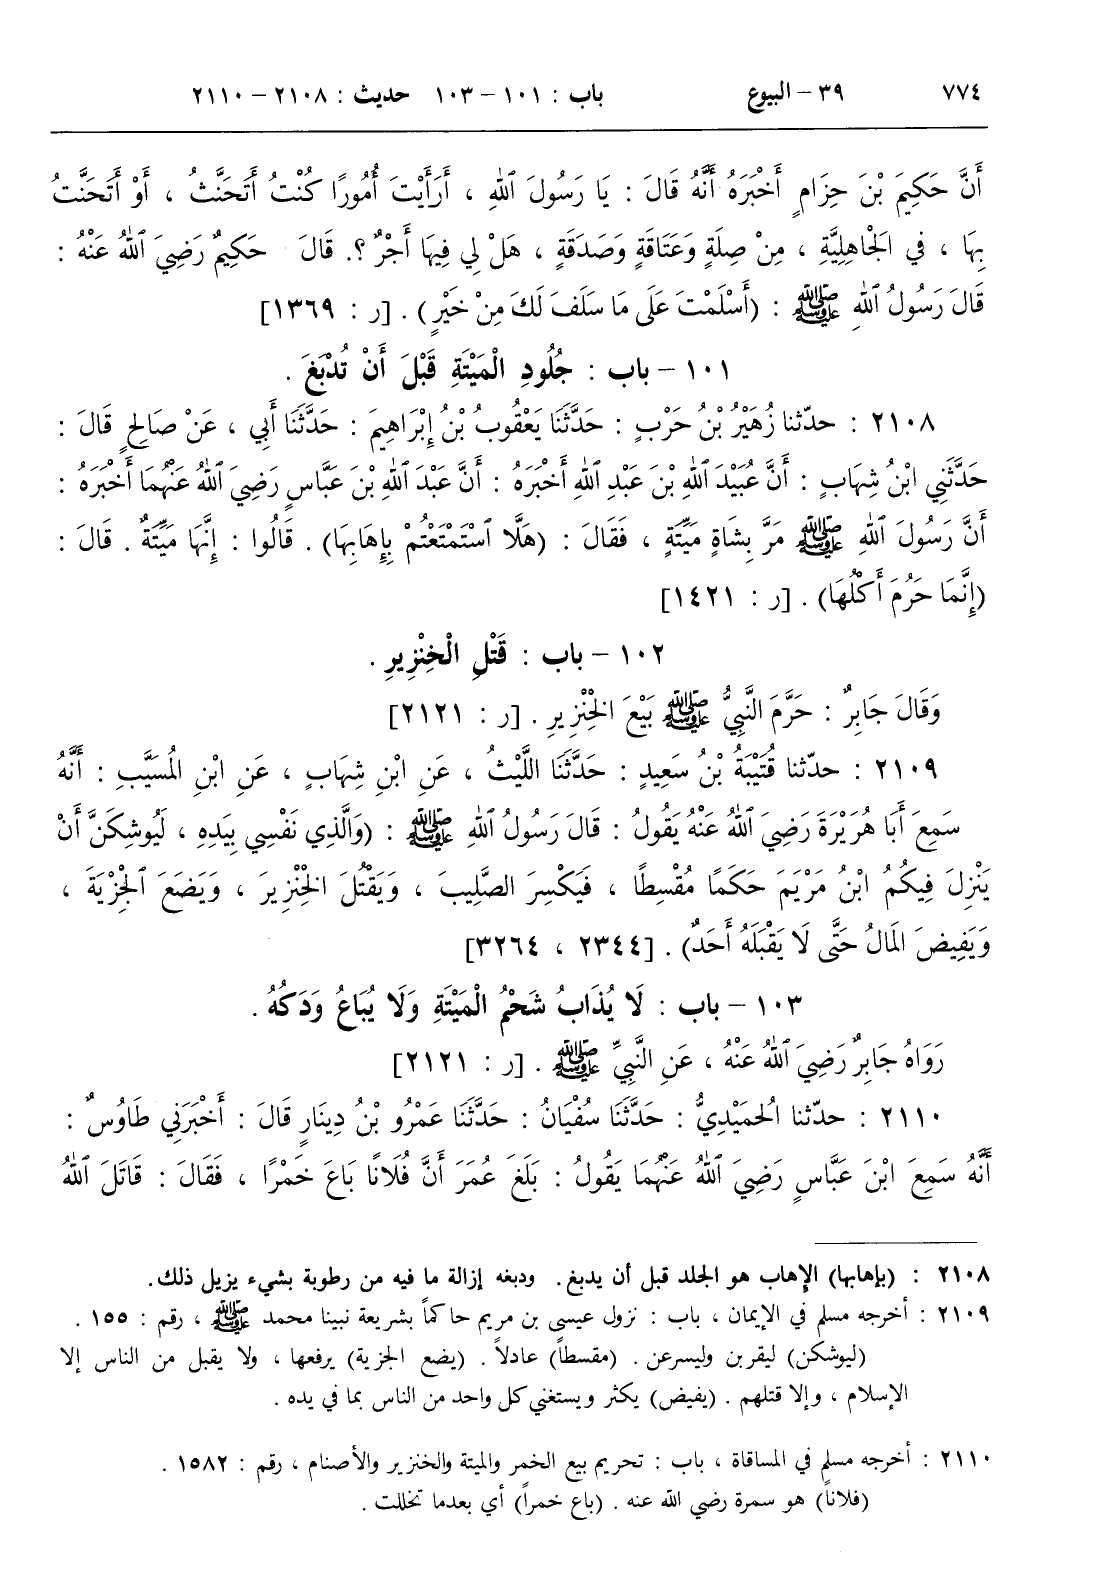 ٧٧٤ ٣٩ – البيوع باب : ١٠١ – ١٠٣ حديث : ٢١٠٨ – ٢١١٠
أَنَّ حَكِيمَ بْنَ حِزَامٍ أَخْبَرَهُ أَنَّهُ قَالَ : يَا رَسُولَ ٱللهِ ، أَرَأَيْتَ أُمُورًا كُنْتُ أَتَحَنَّثُ ، أَوْ أَتَحَنَّتُ
بِهَا ، في الجَاهِلِيَّةِ ، مِنْ صِلَةٍ وَعَتَاقَةٍ وَصَدَقَةٍ ، هَلْ لِي فِيهَا أَجْرٌ ؟. قَالَ حَكِيمٌ رَضِيَ ٱللهُ عَنْهُ :
قَالَ رَسُولُ ٱللهِ ﷺ : (أَسْلَمْتَ عَلَى مَا سَلَفَ لَكَ مِنْ خَيْرٍ) . [ر : ١٣٦٩]
١٠١ – باب : جُلُودِ الْمَيْتَةِ قَبْلَ أَنْ تُدْبَغَ .
٢١٠٨ : حدّثنا زُهَيْرُ بْنُ حَرْبٍ : حَدَّثَنَا يَعْقُوبُ بْنُ إِبْرَاهِيمَ : حَدَّثَنَا أَبِي ، عَنْ صَالِحٍ قَالَ :
حَدَّثَنِي ابْنُ شِهَابٍ : أَنَّ عُبَيْدَ ٱللهِ بْنَ عَبْدِ ٱللهِ أَخْبَرَهُ : أَنَّ عَبْدَ ٱللهِ بْنَ عَبَّاسٍ رَضِيَ ٱللهُ عَنْهُمَا أَخْبَرَهُ :
أَنَّ رَسُولَ ٱللهِ ﷺ مَرَّ بِشَاةٍ مَيِّتَةٍ ، فَقَالَ : (هَلَّا ٱسْتَمْتَعْتُمْ بِإِهَابِهَا) . قَالُوا : إِنَّهَا مَيِّتَةٌ . قَالَ :
(إِنَّمَا حَرُمَ أَكْلُهَا) . [ر : ١٤٢١]
١٠٢ – باب : قَتْلِ الْخِنْزِيرِ .
وَقَالَ جَابِرٌ : حَرَّمَ النَّبِيُّ ﷺ بَيْعَ الخِنْزِيرِ . [ر : ٢١٢١]
٢١٠٩ : حدّثنا قُتَيْبَةُ بْنُ سَعِيدٍ : حَدَّثَنَا اللَّيْثُ ، عَنِ ابْنِ شِهَابٍ ، عَنِ ابْنِ المُسَيَّبِ : أَنَّهُ
سَمِعَ أَبَا هُرَيْرَةَ رَضِيَ ٱللهُ عَنْهُ يَقُولُ : قَالَ رَسُولُ ٱللهِ ﷺ : (وَالَّذِي نَفْسِي بِيَدِهِ ، لَيُوشِكَنَّ أَنْ
يَنْزِلَ فِيكُمُ ابْنُ مَرْيَمَ حَكَمًا مُقْسِطًا ، فَيَكْسِرَ الصَّلِيبَ ، وَيَقْتُلَ الخِنْزِيرَ ، وَيَضَعَ ٱلْجِزْيَةَ ،
وَيَفِيضَ المَالُ حَتَّى لَا يَقْبَلَهُ أَحَدٌ) . [٢٣٤٤ ، ٣٢٦٤]
١٠٣ – باب : لَا يُذَابُ شَحْمُ الْمَيْتَةِ وَلَا يُبَاعُ وَدَكُهُ .
رَوَاهُ جَابِرٌ رَضِيَ ٱللهُ عَنْهُ ، عَنِ النَّبِيِّ ﷺ . [ر : ٢١٢١]
٢١١٠ : حدّثنا الحُمَيْدِيُّ : حَدَّثَنَا سُفْيَانُ : حَدَّثَنَا عَمْرُو بْنُ دِينَارٍ قَالَ : أَخْبَرَنِي طَاوُسٌ :
أَنَّهُ سَمِعَ ابْنَ عَبَّاسٍ رَضِيَ ٱللهُ عَنْهُمَا يَقُولُ : بَلَغَ عُمَرَ أَنَّ فُلَانًا بَاعَ خَمْرًا ، فَقَالَ : قَاتَلَ ٱللهُ
٢١٠٨ : (بإهابها) الإهاب هو الجلد قبل أن يدبغ. ودبغه إزالة ما فيه من رطوبة بشيء يزيل ذلك.
٢١٠٩ : أخرجه مسلم في الإيمان ، باب : نزول عيسى بن مريم حاكماً بشريعة نبينا محمد ﷺ ، رقم : ١٥٥ .
(ليوشكن) ليقربن وليسرعن . (مقسطاً) عادلاً . (يضع الجزية) يرفعها ، ولا يقبل من الناس إلا
الإسلام ، وإلا قتلهم . (يفيض) يكثر ويستغني كل واحد من الناس بما في يده .
٢١١٠ : أخرجه مسلم في المساقاة ، باب : تحريم بيع الخمر والميتة والخنزير والأصنام ، رقم : ١٥٨٢ .
(فلاناً) هو سمرة رضي الله عنه . (باع خمراً) أي بعدما تخللت .